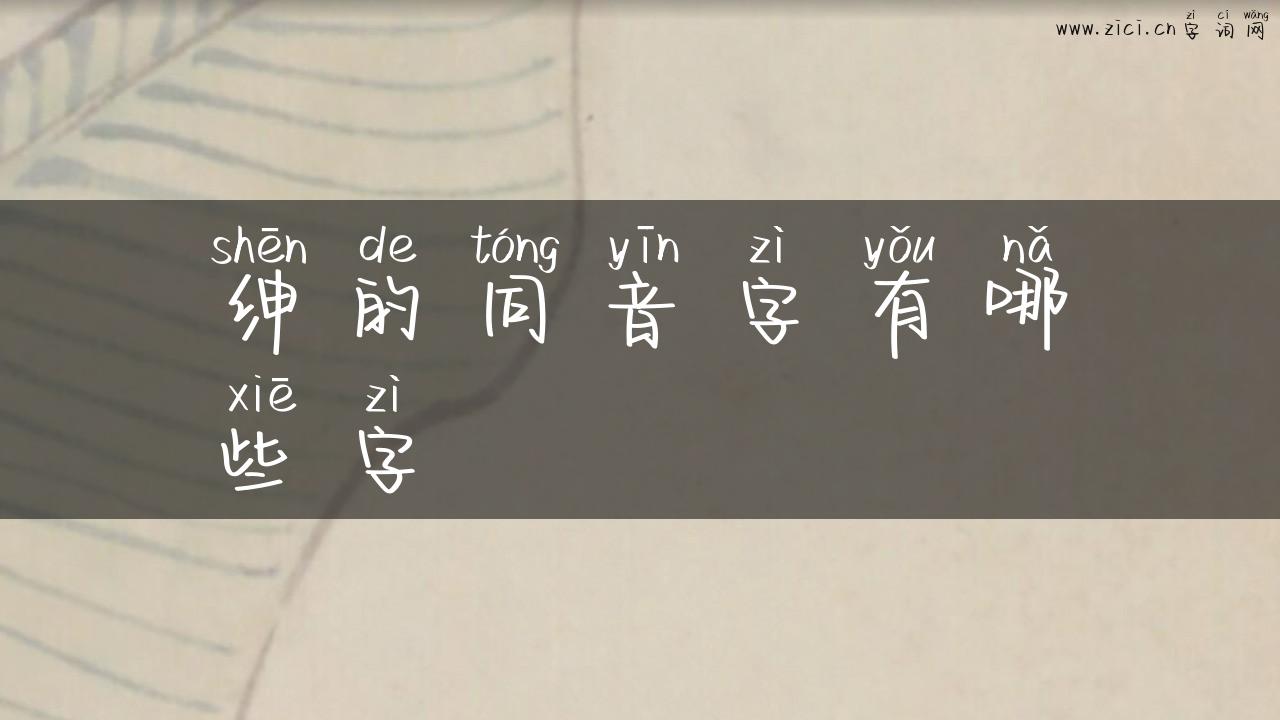 zì cí wǎng
www.zici.cn 字词网
shēn de tóng yīn zì yǒu nǎ
绅的同音字有哪
xiē zì
些字